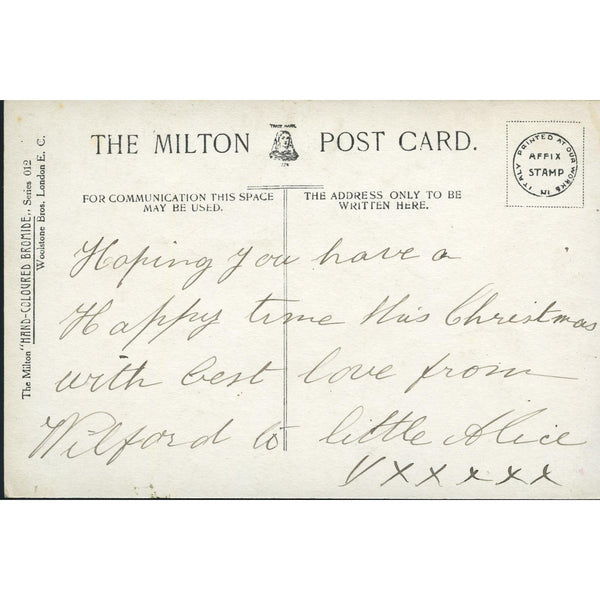 THE MILTON POST CARD.
TRADE MARK
PRINTED AT OUR WORKS IN ITALY
AFFIX
STAMP
FOR COMMUNICATION THIS SPACE
MAY BE USED.
THE ADDRESS ONLY TO BE
WRITTEN HERE.
The Milton "HAND-COLOURED BROMIDE,, Series 012
Woolstone Bros, London E. C.
Hoping you have a
Happy time this Christmas
with best love from
Wilford to little Alice
XXXXXX